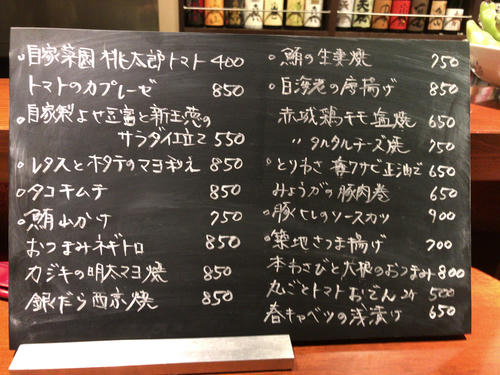 。自家菜園 桃太郎トマト 400
トマトのカプレーゼ 850
。自家製よせ豆富と新玉葱の
サラダ仕立て 550
。レタスとホタテのマヨ和え 850
。タコキムチ 850
。鮪山かけ 750
おつまみネギトロ 850
カジキの明太マヨ焼 850
銀だら西京焼 850
。鮪の生姜焼 750
。白海老の唐揚げ 850
赤城鶏モモ塩焼 650
〃 タルタルチーズ焼 750
。とりわさ 葉ワサビ正油で 650
みょうがの豚肉巻 650
。豚ヒレのソースカツ 900
。築地さつま揚げ 700
本わさびと大根のおつまみ 800
丸ごとトマトおでん 2ケ 500
春キャベツの浅漬け 650